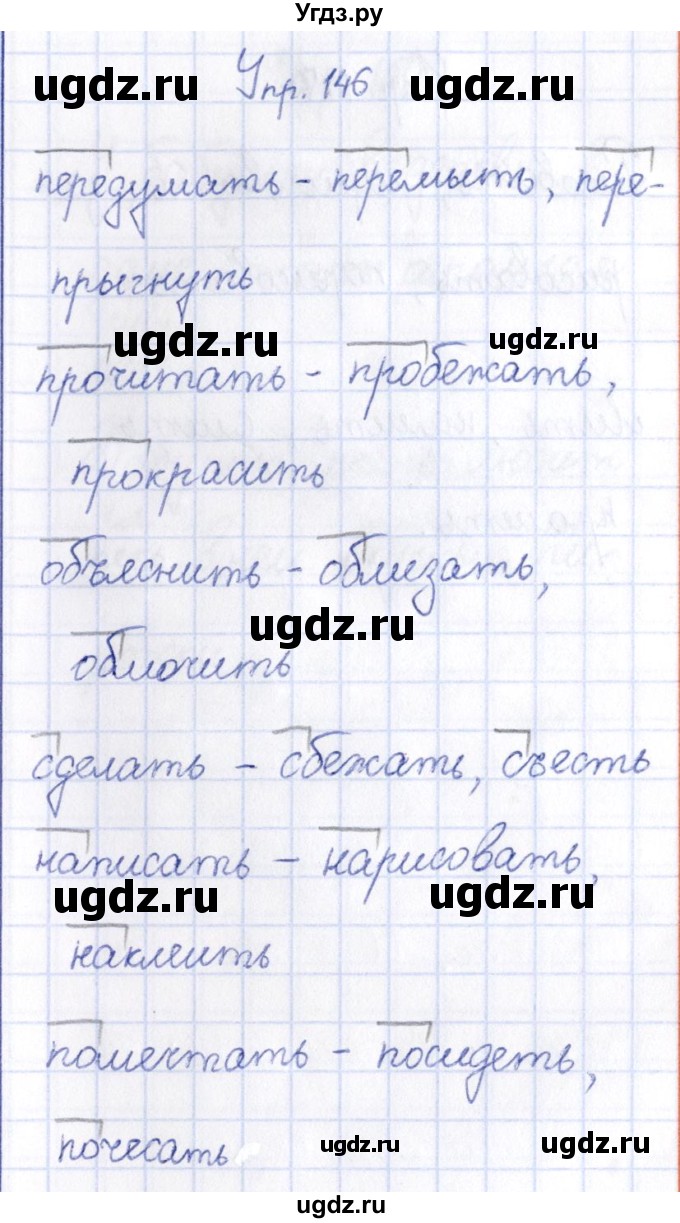 Угдз.ру
ugdz.ru ugdz.ru
Упр. 146
передумать - перемыть, пере-
прыгнуть
ugdz.ru ugdz.ru
прочитать - пробежать,
прокрасить
объяснить - облизать,
ugdz.ru
обмочить
сделать - сбежать, съесть
написать - нарисовать,
ugdz.ru ugdz.ru
наклеить
помечтать - посидеть,
почесать
ugdz.ru ugdz.ru
ugdz.ru